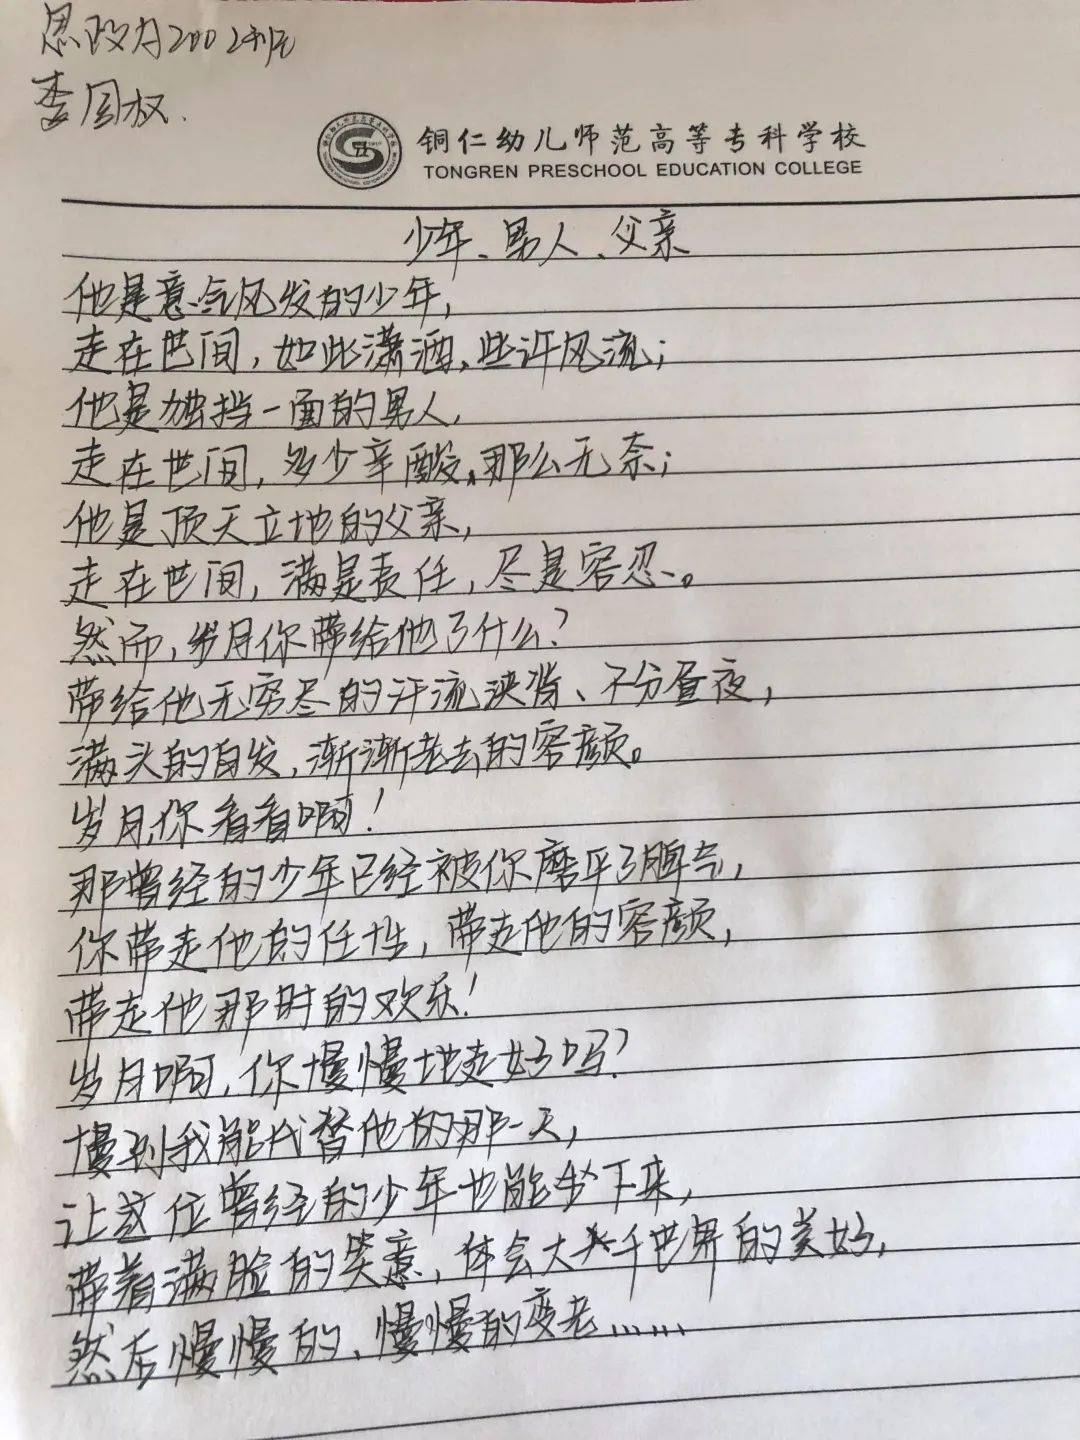 思政方2002班
李国权.
铜仁幼儿师范高等专科学校
TONGREN PRESCHOOL EDUCATION COLLEGE
少年、男人、父亲
他是意气风发的少年,
走在世间,如此潇洒,些许风流;
他是独挡一面的男人,
走在世间,多少辛酸,那么无奈;
他是顶天立地的父亲,
走在世间,满是责任,尽是容忍。
然而,岁月你带给他了什么?
带给他无穷尽的汗流浃背、不分昼夜,
满头的白发,渐渐老去的容颜。
岁月,你看看啊!
那曾经的少年已经被你磨平了脾气,
你带走他的任性,带走他的容颜,
带走他那时的欢乐!
岁月啊,你慢慢地走好吗?
慢到我能代替他的那一天,
让这位曾经的少年也能坐下来,
带着满脸的笑意,体会大千世界的美好,
然后慢慢的、慢慢的变老……